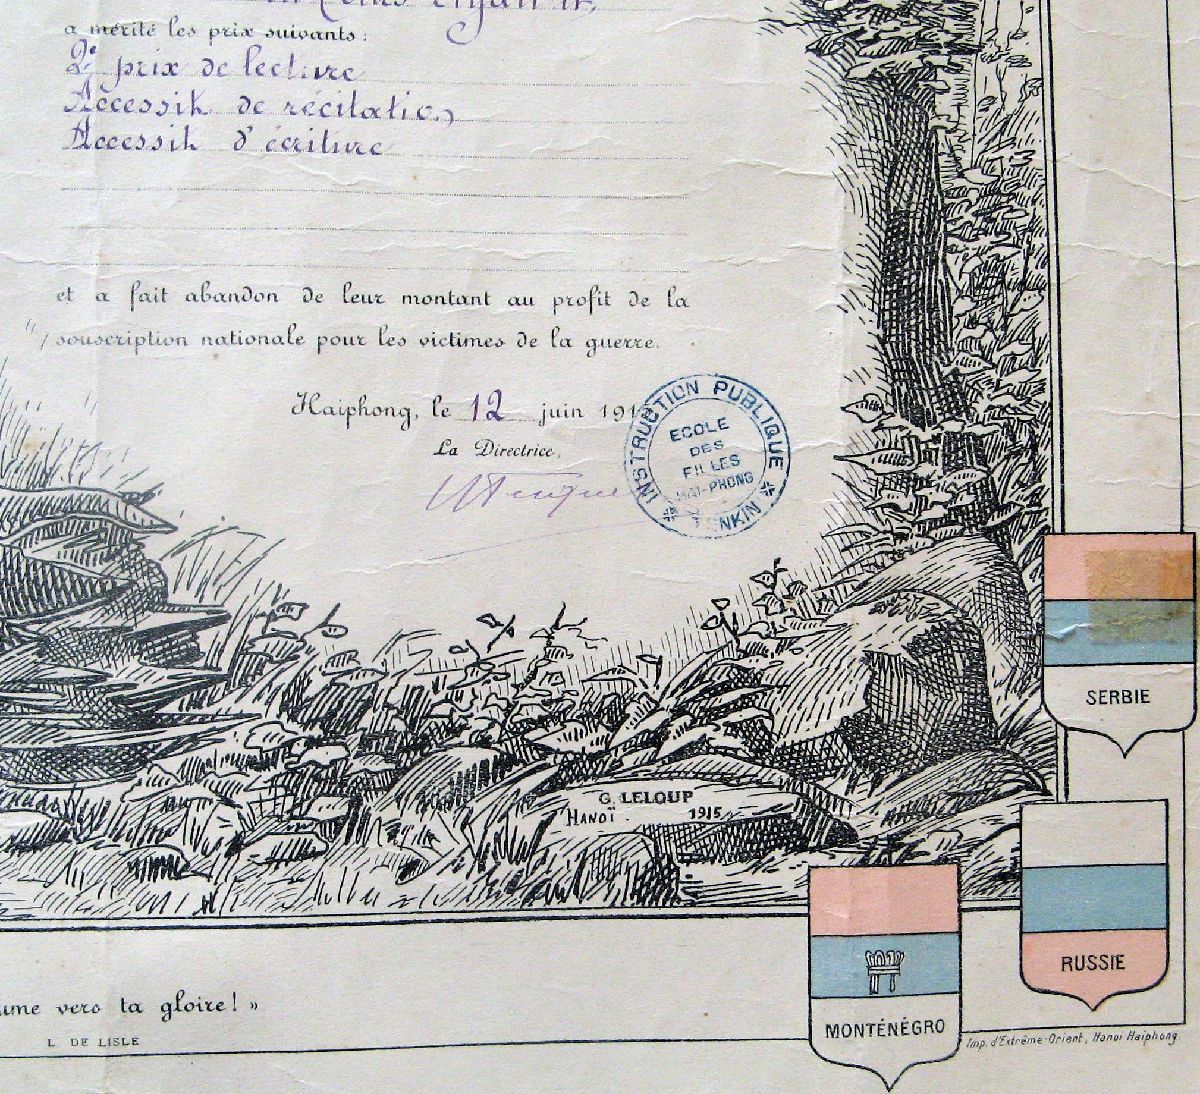 a mérité les prix suivants:
2e prix de lecture
Accessit de récitation
Accessit d'écriture
et a fait abandon de leur montant au profit de la
souscription nationale pour les victimes de la guerre.
Haiphong, le 12 juin 191
La Directrice,
INSTRUCTION PUBLIQUE
ECOLE
DES
FILLES
HAI-PHONG
TONKIN
SERBIE
G. LELOUP
HANOÏ. 1915
RUSSIE
MONTÉNÉGRO
vers ta gloire! »
L. DE LISLE
Imp. d'Extrême-Orient, Hanoi Haiphong